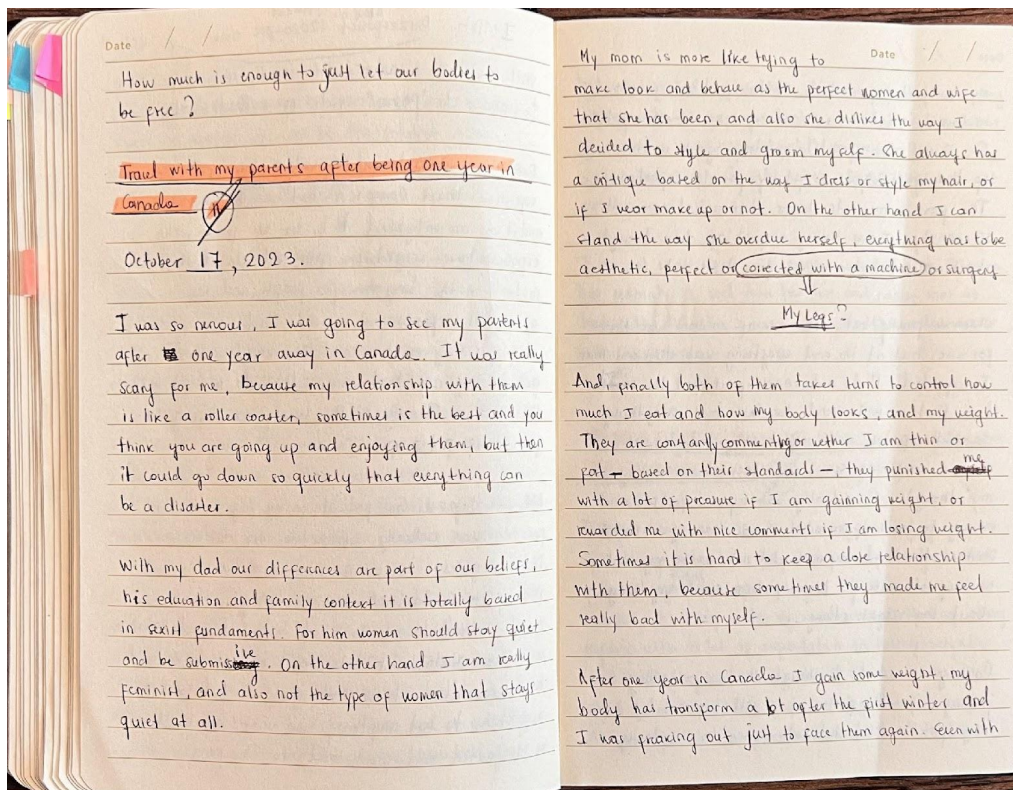 Date / /
How much is enough to just let our bodies to
be free?
Travel with my parents after being one year in
Canada
October 17, 2023.
I was so nervous, I was going to see my parents
after one year away in Canada. It was really
scary for me, because my relationship with them
is like a roller coaster, sometimes is the best and you
think you are going up and enjoying them, but then
it could go down so quickly that everything can
be a disaster.
With my dad our differences are part of our beliefs,
his education and family context it is totally based
in sexist fundaments. For him women should stay quiet
and be submissive. On the other hand I am really
feminist, and also not the type of women that stays
quiet at all.
Date / /
My mom is more like trying to
make look and behave as the perfect women and wife
that she has been, and also she dislikes the way I
decided to style and groom myself. She always has
a critique based on the way I dress or style my hair, or
if I wear make up or not. On the other hand I can
stand the way she overdue herself, everything has to be
aesthetic, perfect or corrected with a machine or surgery
My Legs?
And, finally both of them takes turns to control how
much I eat and how my body looks, and my weight.
They are constantly commenting or wether I am thin or
fat - based on their standards -, they punished me
with a lot of preasure if I am gainning weight, or
rewarded me with nice comments if I am losing weight.
Sometimes it is hard to keep a close relationship
with them, because sometimes they made me feel
really bad with myself.
After one year in Canada I gain some weight, my
body has transform a lot after the first winter and
I was freaking out just to face them again. Even with